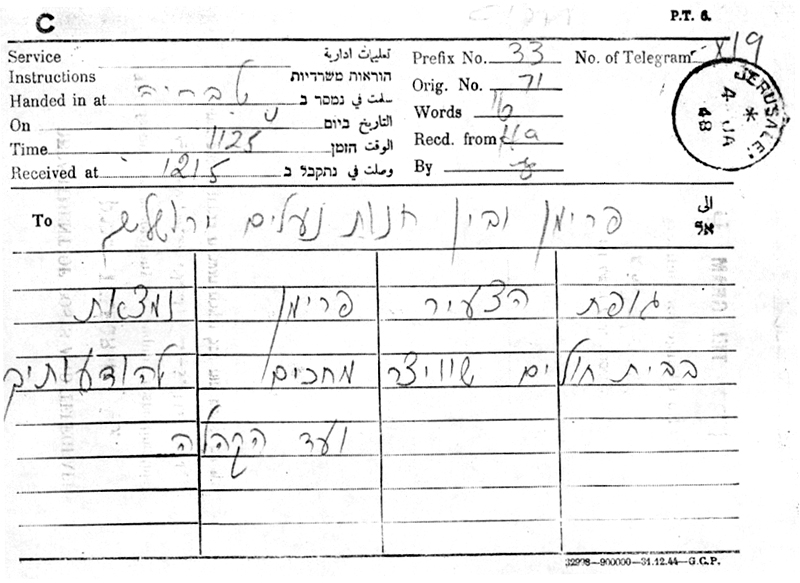 C
P.T. 6.
Service تعليمات ادارية
Instructions הוראות משרדיות
Prefix No. 33 No. of Telegram 819
Handed in at טבריה سلمت في נמסר ב
Orig. No. 71
On التاريخ ביום
Words 16
Time 1125 الوقت הזמן
Recd. from Ha
Received at 1215 وصلت في נתקבל ב
By
JERUSALE
4 JA
48
To פרימן ובין חנות נעלים ירושלים الى אל
גופת הצעיר פרימן נמצאת
בבית חולים שוויצר מחכים להודעותיכם
ועד הקהלה
32998—900000—31.12.44—G.C.P.